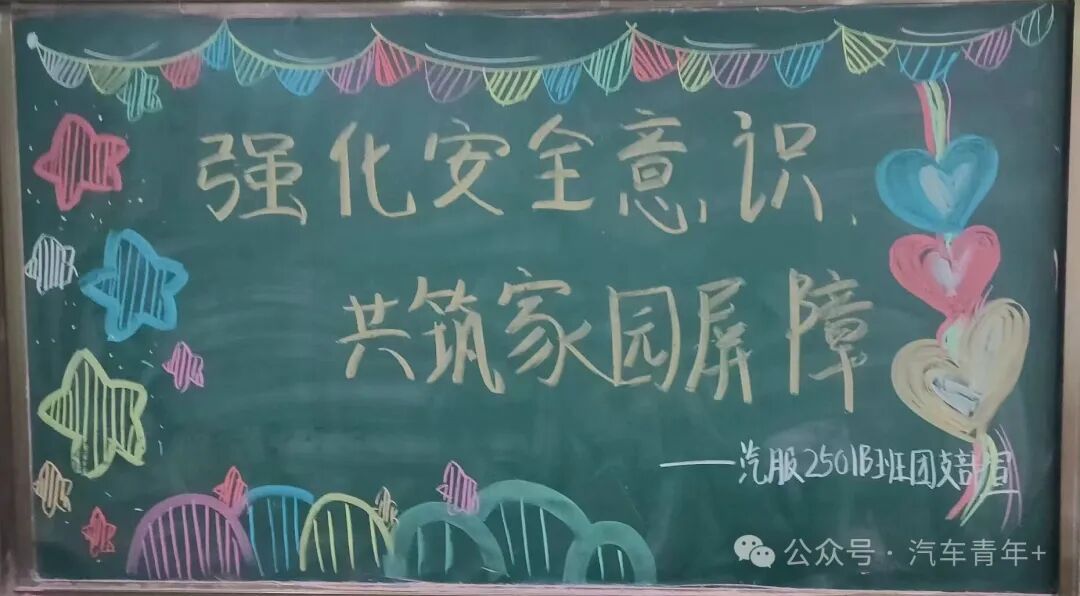 强化安全意识、
共筑家园屏障
——汽服2501B班团支部宣
公众号·汽车青年+